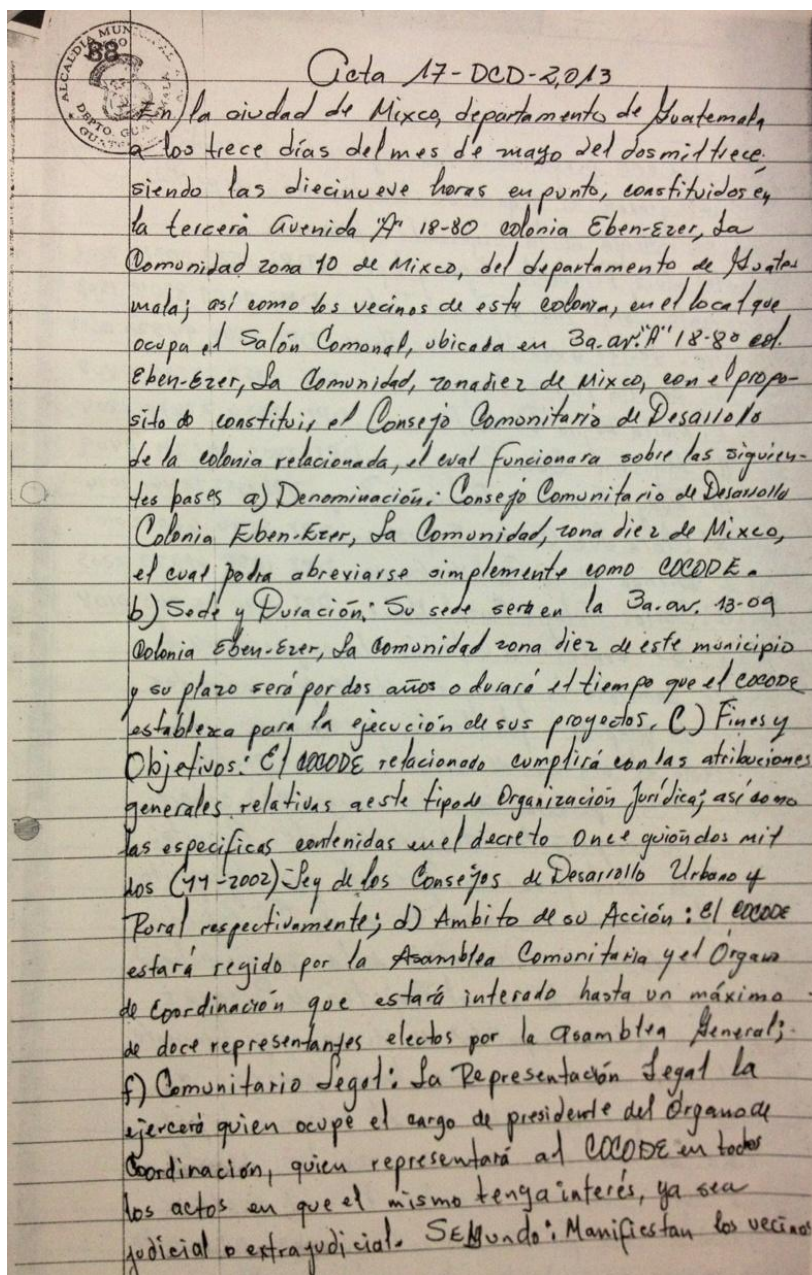 ALCALDIA MUNICIPAL
88
DEPTO. GUATEMALA
Acta 17-DCD-2,013
En la ciudad de Mixco, departamento de Guatemala
a los trece días del mes de mayo del dosmil trece.
siendo las diecinueve horas en punto, constituidos en
la tercera avenida "A" 18-80 colonia Eben-Ezer, La
Comunidad zona 10 de Mixco, del departamento de Guate
mala; así como los vecinos de esta colonia, en el local que
ocupa el Salón Comonal, ubicada en 3a. av. "A" 18-80 col.
Eben-Ezer, La Comunidad, zona diez de Mixco, con el propo-
sito de constituir el Consejo Comunitario de Desarrollo
de la colonia relacionada, el cual funcionara sobre las siguien-
tes bases a) Denominación: Consejo Comunitario de Desarrollo
Colonia Eben-Ezer, La Comunidad, zona diez de Mixco,
el cual podra abreviarse simplemente como COCODE.
b) Sede y Duración: Su sede será en la 3a. av. 13-09
Colonia Eben-Ezer, La Comunidad zona diez de este municipio
y su plazo será por dos años o durará el tiempo que el COCODE
establezca para la ejecución de sus proyectos. C) Fines y
Objetivos: El COCODE relacionado cumplirá con las atribuciones
generales relativas a este tipo de Organización Jurídica; así como
las especificas contenidas en el decreto Once guión dos mil
dos (11-2002) Ley de los Consejos de Desarrollo Urbano y
Rural respectivamente; d) Ambito de su Acción: El COCODE
estará regido por la Asamblea Comunitaria y el Órgano
de Coordinación que estará interado hasta un máximo
de doce representantes electos por la Asamblea General;
f) Comunitario Legal: La Representación Legal la
ejercerá quien ocupe el cargo de presidente del Órgano de
Coordinación, quien representará al COCODE en todos
los actos en que el mismo tenga interés, ya sea
judicial o extrajudicial. SEGundo: Manifiestan los vecinos